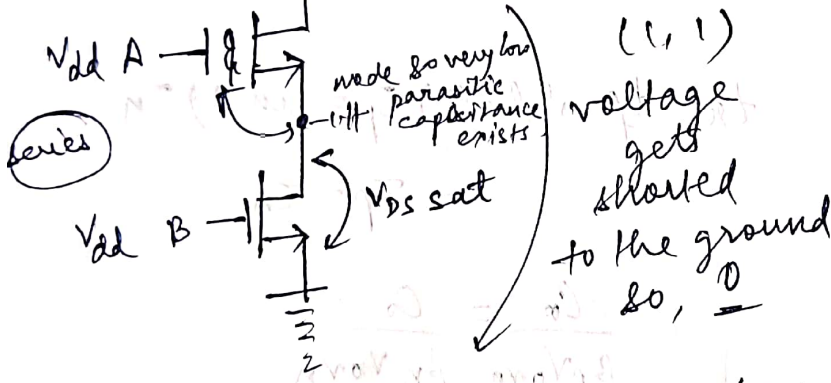 Vdd A
node so very low
parasitic
capacitance
exists
series
VDS sat
Vdd B
(1, 1)
voltage
gets
shorted
to the ground
so, 0